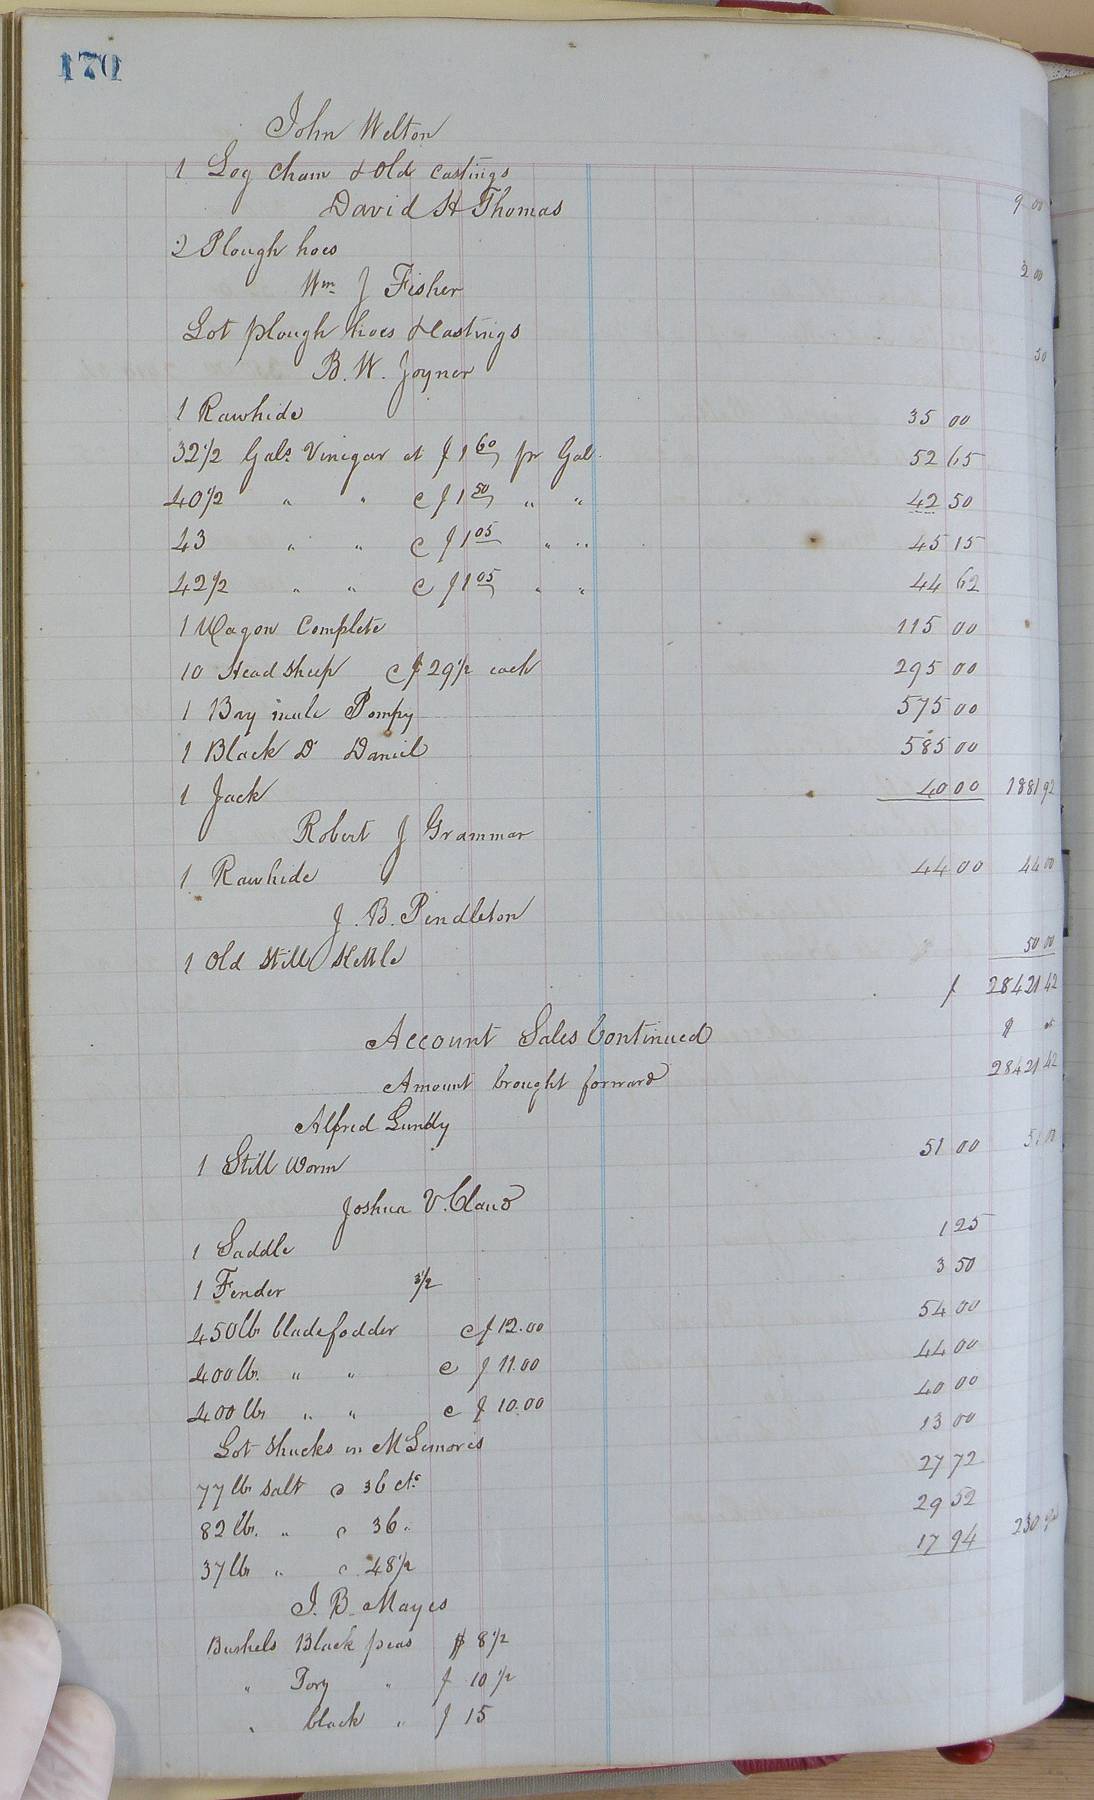 170
John Welton
1 Log Chain & Old Castings 9 00
David H Thomas
2 Plough hoes 3 00
Wm J Fisher
Lot plough hoes & Castings 50
B. W. Joyner
1 Rawhide 35 00
32 1/2 Gals Vinegar at $1 60 pr Gal. 52 65
40 1/2 " " @ $1 50 " " 42 50
43 " " @ $1 05 " " 45 15
42 1/2 " " @ $1 05 " " 44 62
1 Wagon Complete 115 00
10 Head Sheep @ $29 1/2 each 295 00
1 Bay mule Pompy 575 00
1 Black Do Daniel 585 00
1 Jack 40 00 1881 92
Robert J Grammar
1 Rawhide 44 00 44 00
J. B. Pendleton
1 Old Still Kettle 50 00
$ 28421 42
Account Sales Continued $ ct
Amount brought forward 28421 42
Alfred Lundy
1 Still Worm 51 00 51 00
Joshua V. Claud
1 Saddle 1 25
1 Fender 3 1/2 3 50
450 lb bladefodder @ $12.00 54 00
400 lb. " " @ $11.00 44 00
400 lb " " @ $10.00 40 00
Lot Shucks in 13 00
77 lb Salt @ 36 cts 27 72
82 lb. " @ 36 " 29 52
37 lb " @ 48 1/2 17 94 230
J. B. Mayes
Bushels Black peas $ 8 1/2
" Tory " $ 10 1/2
" black " $ 15